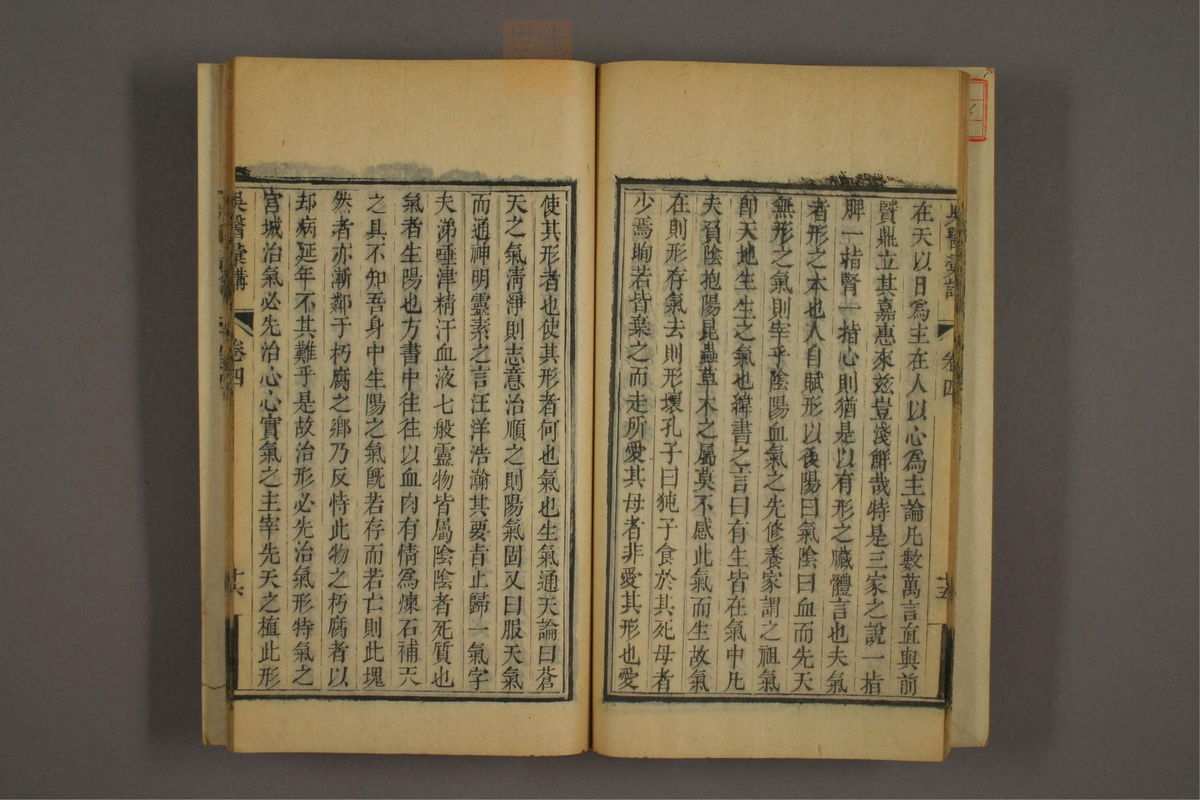 吳醫彙講
卷四
十五
在天以日爲主在人以心爲主論凡數萬言直與前
賢鼎立其嘉惠來兹豈淺鮮哉特是三家之說一指
脾一指腎一指心則猶是以有形之臟體言也夫氣
者形之本也人自賦形以後陽曰氣陰曰血而先天
無形之氣則宰乎陰陽血氣之先修養家謂之祖氣
卽天地生生之氣也緯書之言曰有生皆在氣中凡
夫負陰抱陽昆蟲草木之屬莫不感此氣而生故氣
在則形存氣去則形壞孔子曰㹠子食於其死母者
少焉眴若皆棄之而走所愛其母者非愛其形也愛
使其形者也使其形者何也氣也生氣通天論曰蒼
天之氣淸淨則志意治順之則陽氣固又曰服天氣
而通神明靈素之言汪洋浩瀚其要旨止歸一氣字
夫涕唾津精汗血液七般靈物皆屬陰陰者死質也
氣者生陽也方書中往往以血肉有情爲煉石補天
之具不知吾身中生陽之氣旣若存而若亡則此塊
然者亦漸鄰于朽腐之鄕乃反恃此物之朽腐者以
却病延年不其難乎是故治形必先治氣形特氣之
宮城治氣必先治心心實氣之主宰先天之植此形
吳醫彙講
卷四
十六